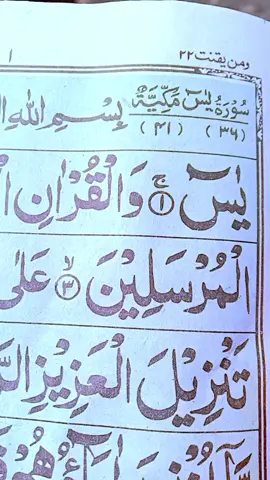 ومن يقنت ٢٢
سُوْرَةُ يٰسٓ مَكِّيَّةٌ بِسْمِ اللهِ
(٣٦) (٤١)
يٰسٓ ۚ ﴿١﴾ وَالْقُرْاٰنِ
الْمُرْسَلِيْنَ ۙ ﴿٣﴾ عَلٰى
تَنْزِيْلَ الْعَزِيْزِ